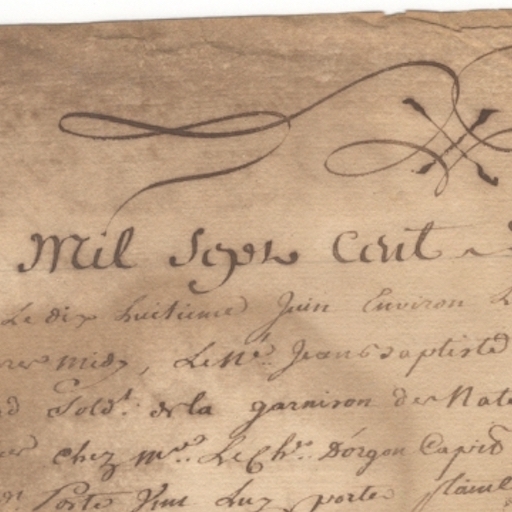 Mil Sept Cent
Le dix huitieme Juin Environ
midy, Le Nr. Jean Baptiste
Soldt. de la garnison de Nat
chez Mr. Le Chr. D'orgon Capit
Poste Vint Luy porter plainte